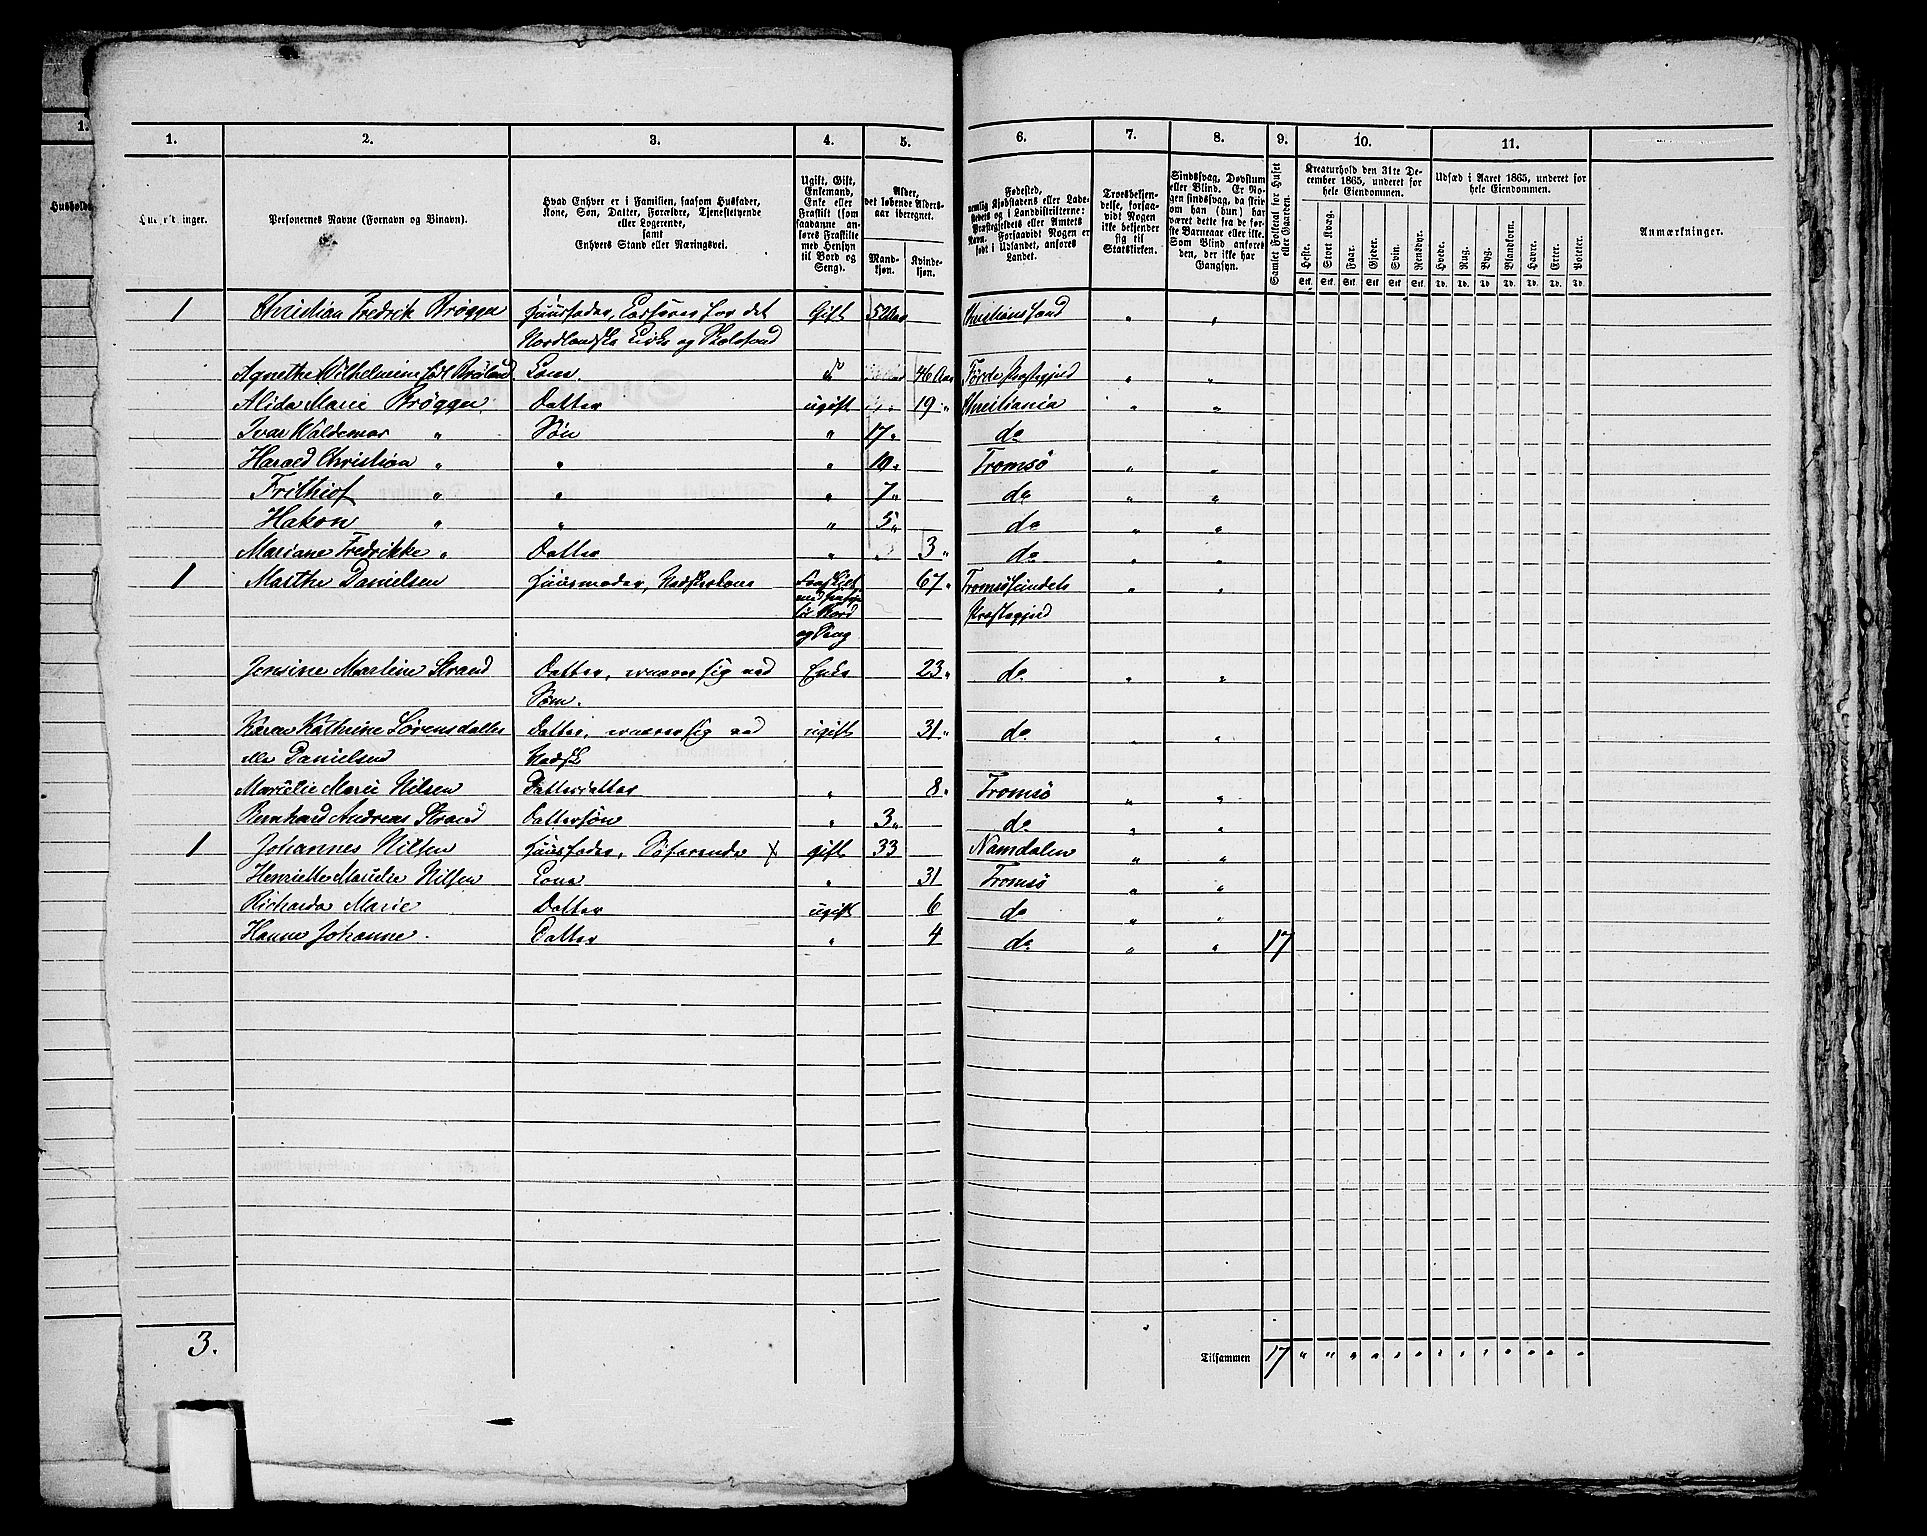 1.
2.
3.
4.
5.
6.
7.
8.
9.
10.
11.
Husholdninger.
Personernes Navne (Fornavn og Binavn).
Hvad Enhver er i Familien, saasom Husfader, Kone, Søn, Datter, Forældre, Tjenestetyende eller Logerende, samt Enhvers Stand eller Næringsvei.
Ugift, Gift, Enkemand, Enke eller Fraskilt (som saadanne anføres Fraskilte med Hensyn til Bord og Seng).
Alder, det løbende Aldersaar iberegnet.
Mandkjøn.
Kvindekjøn.
Fødested, nemlig Kjøbstadens eller Ladestedets og i Landdistrikterne: Præstegjeldets eller Amtets Navn. Forsaavidt Nogen er født i Udlandet, anføres Landet.
Troesbekjendelse, forsaavidt Nogen ikke bekjender sig til Statskirken.
Sindssvag, Døvstum eller Blind. Er Nogen sindssvag, da skrives om han (hun) har været dette fra de første Barneaar eller ikke. Som Blind anføres den, der ikke har Gangsyn.
Samlet Folketal for Huset eller Gaarden.
Kreaturhold den 31te December 1865, underet for hele Eiendommen.
Udsæd i Aaret 1865, underet for hele Eiendommen.
Anmærkninger.
Heste. Stort Kvæg. Faar. Gjeder. Svin. Rensdyr. Hvede. Rug. Byg. Blandkorn. Havre. Erter. Poteter.
Stk. Stk. Stk. Stk. Stk. Stk. Td. Td. Td. Td. Td. Td. Td.
1 Christian Fredrik Brøgger Huusfader, Casserer for det Gift 52 Aar Christianssand " "
Nordlandske Kirke og Skolefond
Agnethe Wilhelmine Kone. do 46 Aar Førde Præstegjeld " "
Alida Marie Brøgger Datter ugift 19 " Christiania " "
Ivar Waldemar " Søn " 17 " do
Harald Christian " " " 10 " Tromsø " "
Frithiof " " " 7 " do " "
Hakon " " " 5 " do " "
Mariane Fredrikke " Datter " 3 " do " "
1 Marthe Danielsen Huusmoder, Fraskilt 67 " Tromsøsundets " "
med Hensyn Præstegjeld
til Bord
og Seng
Jensine Martine Strand Datter, ernærer sig ved Enke 23 " do " "
Søm.
Karen Kathrine Sørensdatter Datter, ernærer sig ved ugift 31 " do " "
eller Danielsen
Marcelie Marie Nilsen Datterdatter " 8 " Tromsø " "
Bernhard Andreas Strand Dattersøn " 3 " do " "
1 Johannes Nilsen Huusfader, Søfarende x gift 33 Namdalen " "
Henriette Marcelie Nilsen Kone " 31 Tromsø " "
Richarda Marie Datter ugift 6 do " "
Hanne Johanne. Datter " 4 do " " 17
3.
Tilsammen 17 " " " " " " " " " " " " "